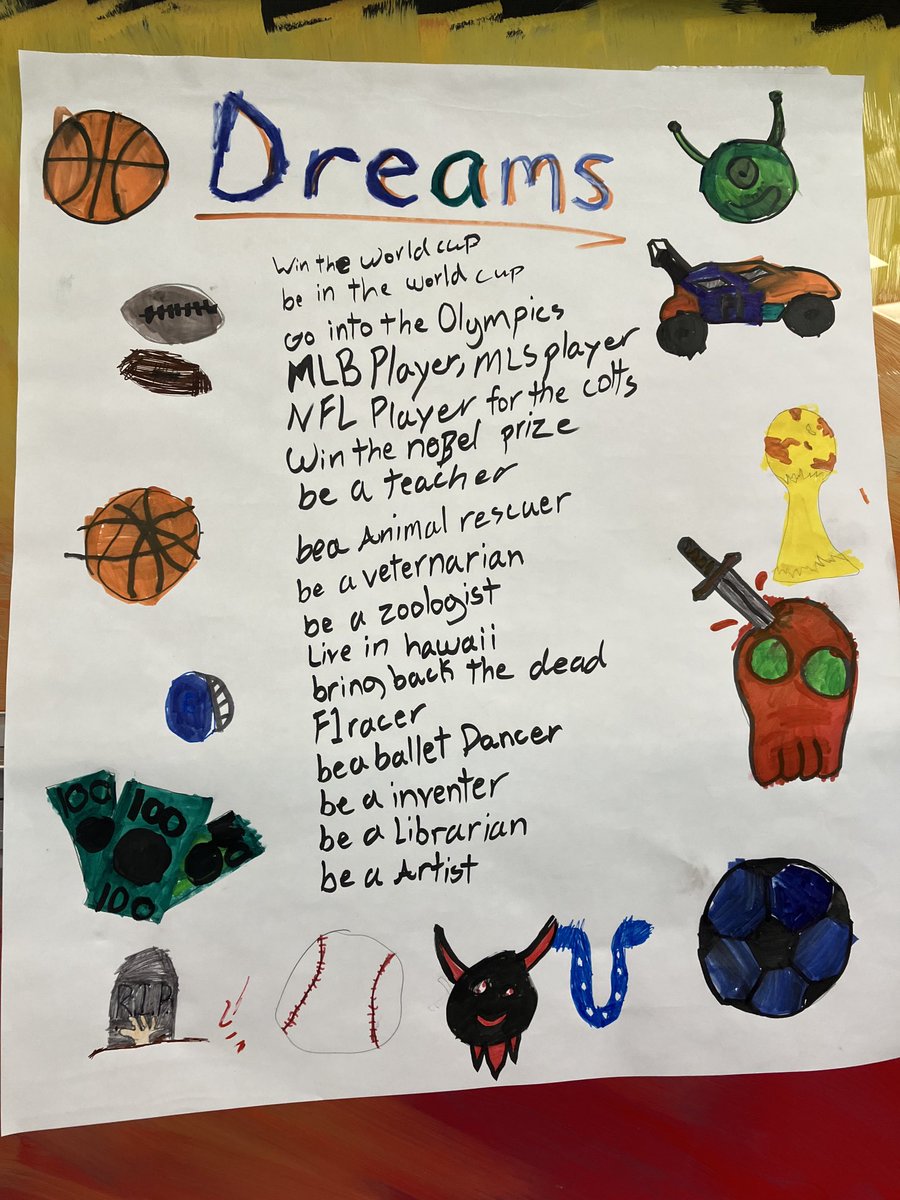 Dreams
Win the world cup
be in the world cup
Go into the Olympics
MLB Player, MLS player
NFL Player for the colts
Win the noBel prize
be a teacher
be a Animal rescuer
be a veternarian
be a zoologist
Live in hawaii
bring back the dead
F1 racer
be a ballet Dancer
be a inventer
be a Librarian
be a Artist
100
100
100
RIP